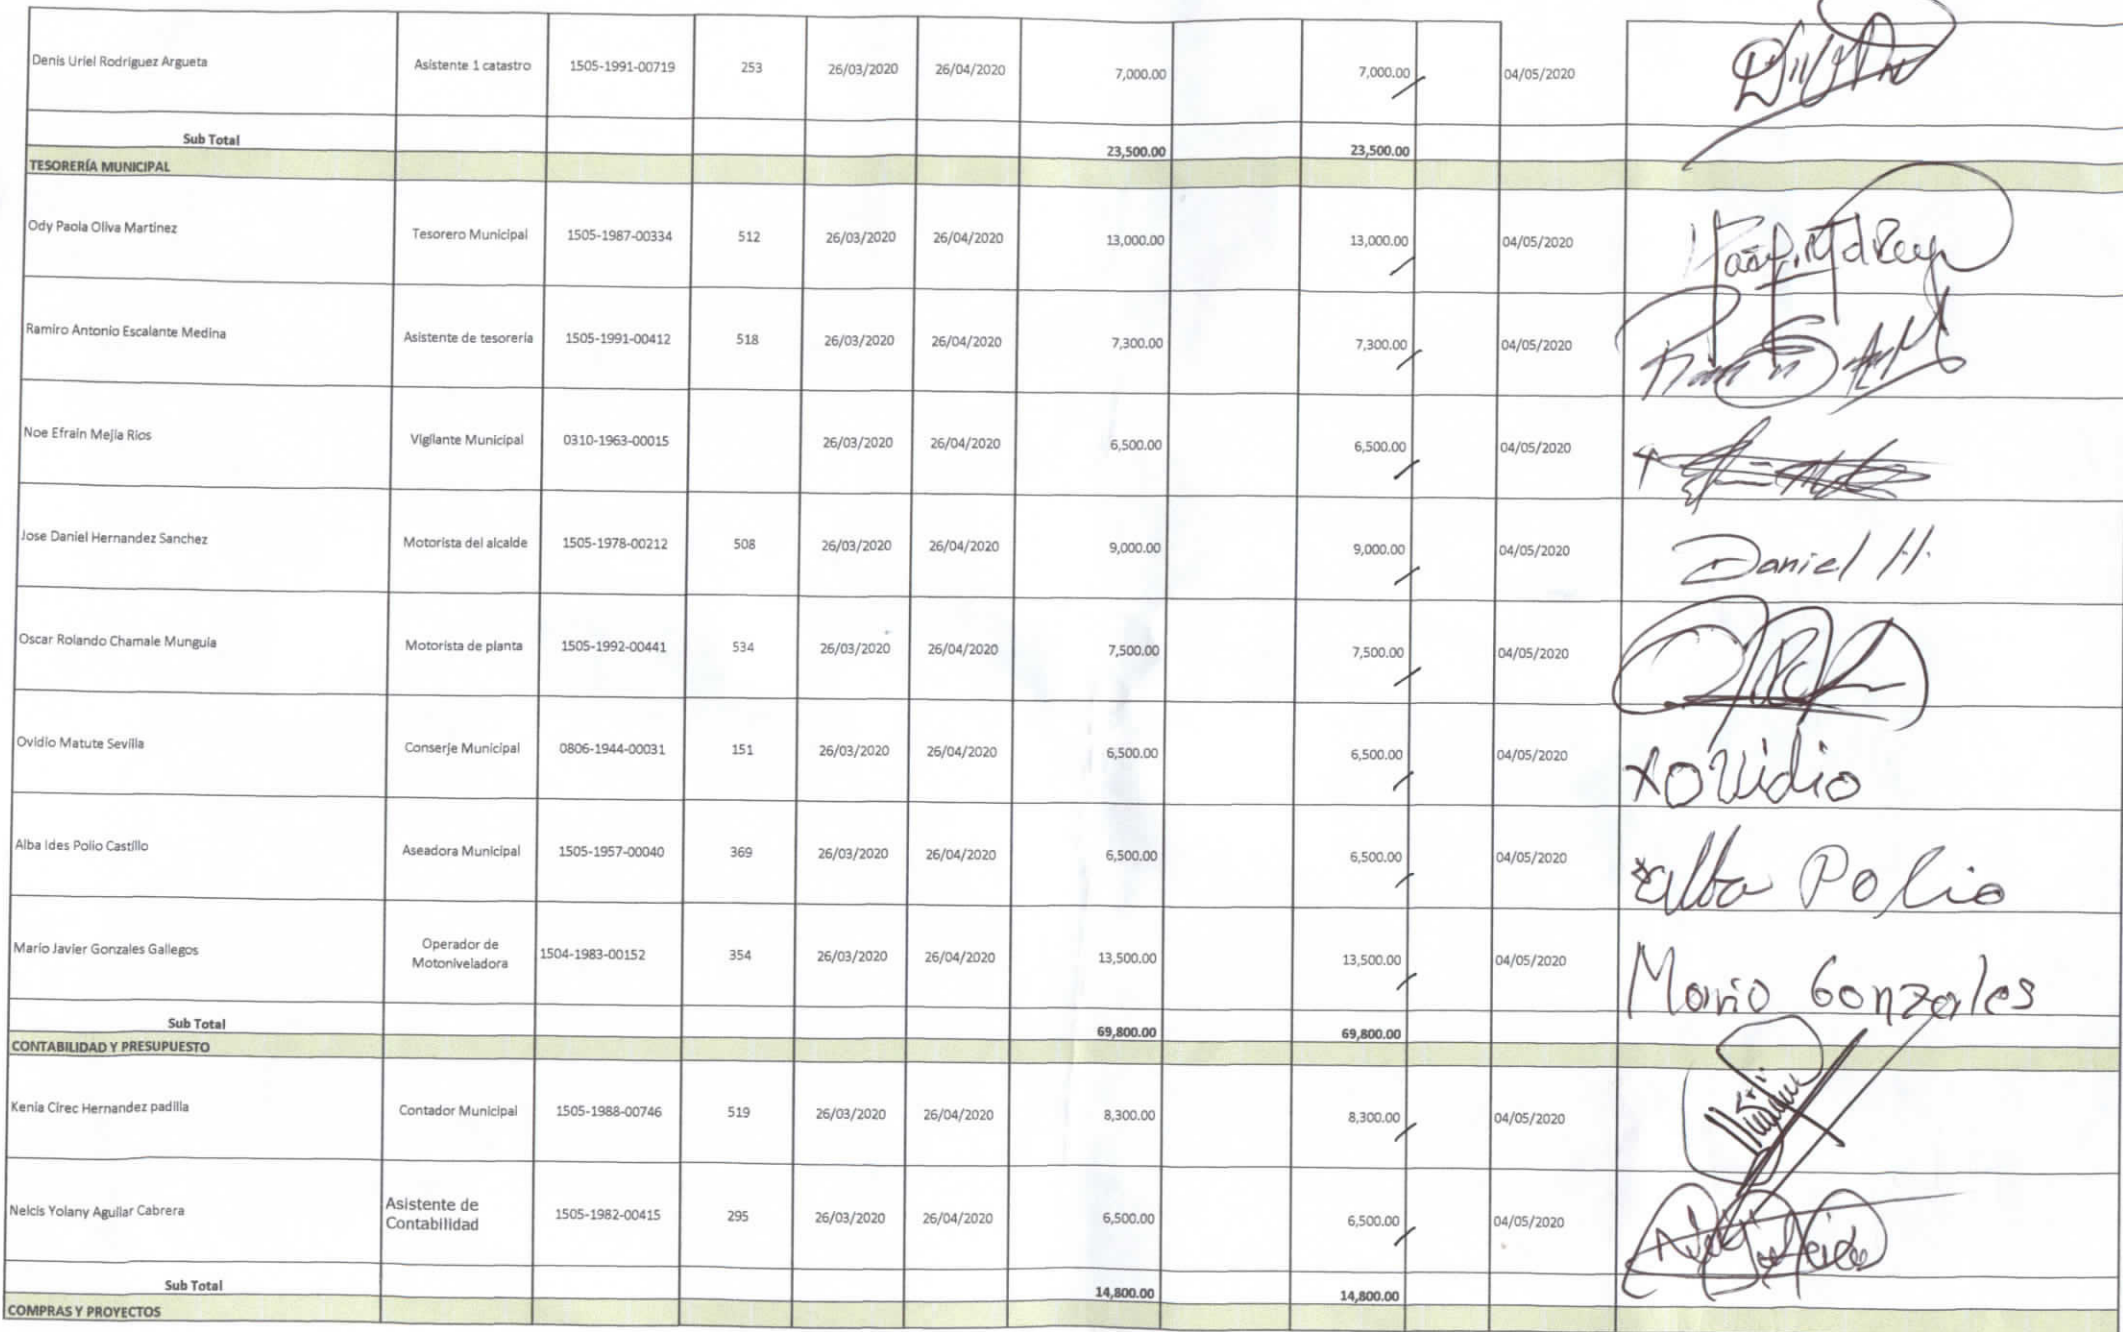 Denis Uriel Rodriguez Argueta Asistente 1 catastro 1505-1991-00719 253 26/03/2020 26/04/2020 7,000.00 7,000.00 04/05/2020
Sub Total 23,500.00 23,500.00
TESORERÍA MUNICIPAL
Ody Paola Oliva Martinez Tesorero Municipal 1505-1987-00334 512 26/03/2020 26/04/2020 13,000.00 13,000.00 04/05/2020
Ramiro Antonio Escalante Medina Asistente de tesoreria 1505-1991-00412 518 26/03/2020 26/04/2020 7,300.00 7,300.00 04/05/2020
Noe Efrain Mejia Rios Vigilante Municipal 0310-1963-00015 26/03/2020 26/04/2020 6,500.00 6,500.00 04/05/2020
Jose Daniel Hernandez Sanchez Motorista del alcalde 1505-1978-00212 508 26/03/2020 26/04/2020 9,000.00 9,000.00 04/05/2020 Daniel H.
Oscar Rolando Chamale Munguia Motorista de planta 1505-1992-00441 534 26/03/2020 26/04/2020 7,500.00 7,500.00 04/05/2020
Ovidio Matute Sevilla Conserje Municipal 0806-1944-00031 151 26/03/2020 26/04/2020 6,500.00 6,500.00 04/05/2020 xovidio
Alba Ides Polio Castillo Aseadora Municipal 1505-1957-00040 369 26/03/2020 26/04/2020 6,500.00 6,500.00 04/05/2020 alba Polio
Mario Javier Gonzales Gallegos Operador de Motoniveladora 1504-1983-00152 354 26/03/2020 26/04/2020 13,500.00 13,500.00 04/05/2020 Mario Gonzales
Sub Total 69,800.00 69,800.00
CONTABILIDAD Y PRESUPUESTO
Kenia Cirec Hernandez padilla Contador Municipal 1505-1988-00746 519 26/03/2020 26/04/2020 8,300.00 8,300.00 04/05/2020
Nelcis Yolany Aguilar Cabrera Asistente de Contabilidad 1505-1982-00415 295 26/03/2020 26/04/2020 6,500.00 6,500.00 04/05/2020
Sub Total 14,800.00 14,800.00
COMPRAS Y PROYECTOS